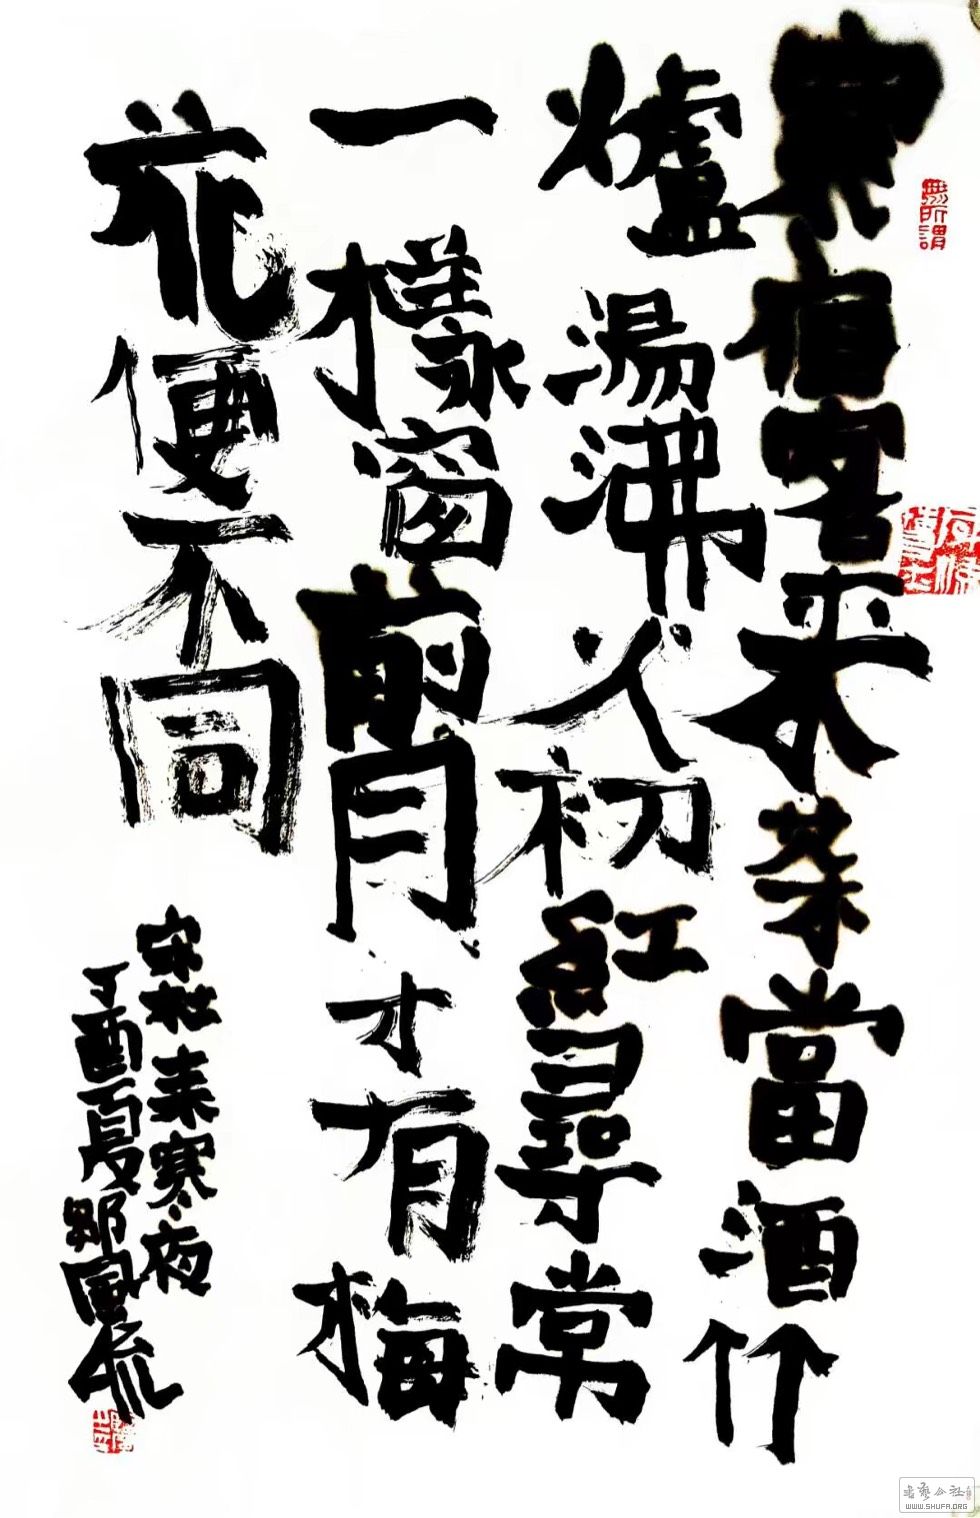 寒宿客来茶當酒竹
爐湯沸火初紅尋常
一樣窗前月才有梅
花便不同
宋杜耒寒夜
丁酉夏鄒風流
無所謂
WWW.SHUFA.ORG